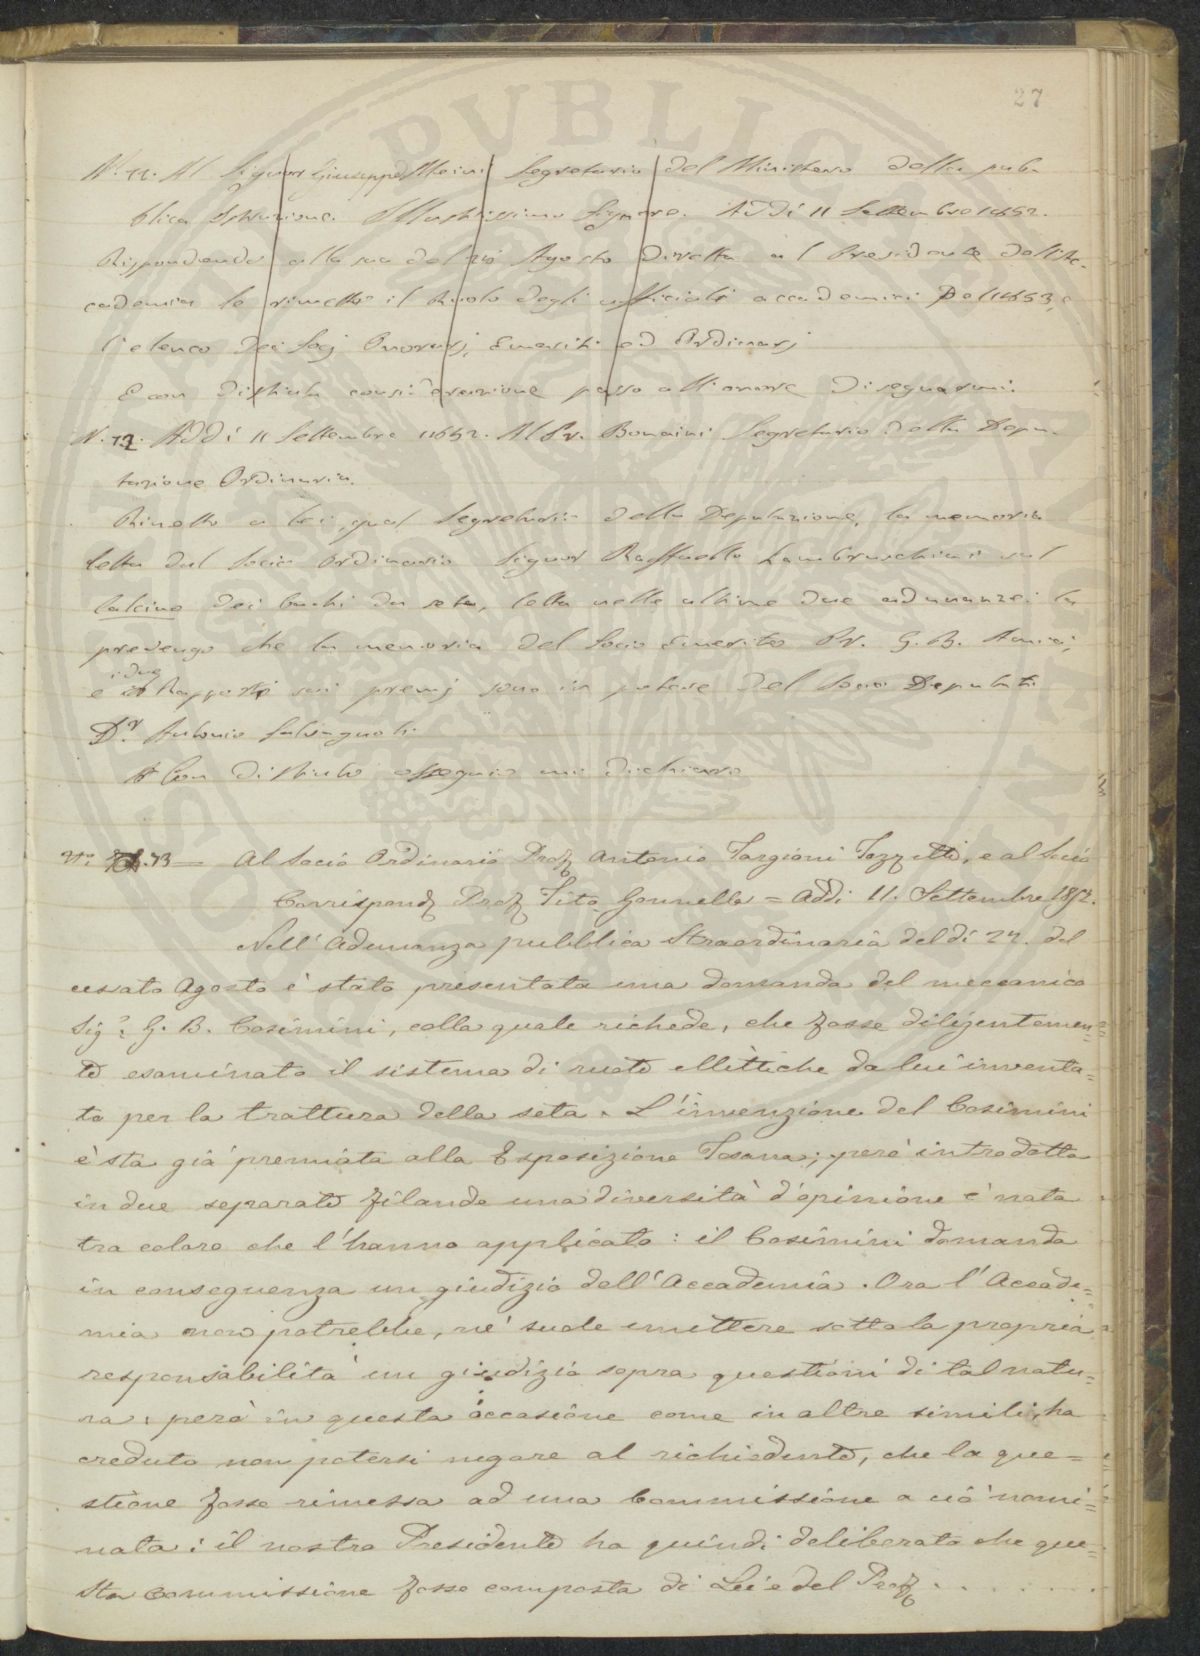 27
N. 72. Al Signor Giuseppe Meini Segretario del Ministero della pub
blica Istruzione. Illustrissimo Signore. Addì 11 Settembre 1852.
Rispondendo alla sua del Agosto diretta al Presidente dell'Ac-
cademia le rimetto il Ruolo degli ufficiali accademici del 1853, e
l'elenco dei Socj Onorarj, Emeriti ed Ordinarj
E con distinta considerazione passo all'onore di segnarmi.
N. 72. Addì 11 Settembre 1852. Al Pr. Bonaini Segretario della Depu-
tazione Ordinaria.
Rimetto a Lei, qual Segretario della Deputazione, la memoria
letta dal Socio Ordinario Signor Raffaello Lambruschini sul
calcino dei bachi da seta, letta nelle ultime due adunanze: la
prevengo che la memoria del Socio Emerito Pr. G. B. Amici,
e i due Rapporti sui premj sono in potere del Socio Deputato
Dr. Antonio Salvagnoli.
Con distinto ossequio mi dichiaro
No. 73 = Al Socio Ordinario Prof. Antonio Targioni Tozzetti, e al Socio
Corrispond. Prof. Tito Gonnella = Addì 11. Settembre 1852.
Nell'Adunanza pubblica Straordinaria del dì 24. del
cessato Agosto è stata presentata una domanda del meccanico
Sigr. G. B. Cosimini, colla quale richede, che fosse diligentemen=
te esaminato il sistema di ruote ellittiche da lui inventa=
to per la trattura della seta. L'invenzione del Cosimini
è sta già premiata alla Esposizione Tosana; però introdotta
in due separate filande una diversità d'opinione è nata
tra coloro che l'hanno applicato: il Cosimini domanda
in conseguenza un giudizio dell'Accademia. Ora l'Accade=
mia non potrebbe, nè suole emettere sotto la propria
responsabilità un giudizio sopra questioni di tal natu=
ra: però in questa occasione come in altre simili, ha
creduto non potersi negare al richiedente, che la que=
stione fosse rimessa ad una Commissione a ciò nomi=
nata: il nostro Presidente ha quindi deliberato che que=
sta Commissione fosse composta di Lei e del Prof. . . . . .